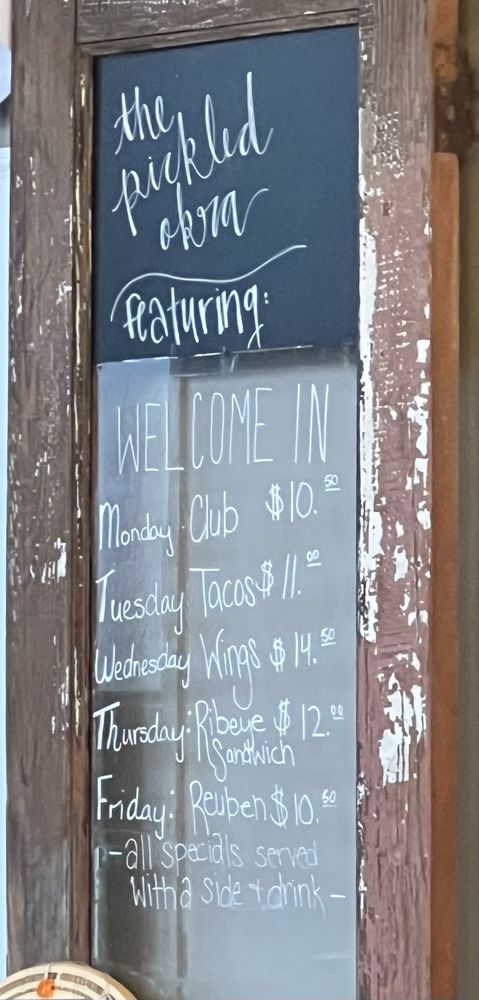 the
pickled
okra
featuring:
WELCOME IN
Monday: Club $10.50
Tuesday: Tacos $11.00
Wednesday Wings $14.50
Thursday: Ribeye $12.00
Sandwich
Friday: Reuben $10.50
-all specials served
with a side + drink-